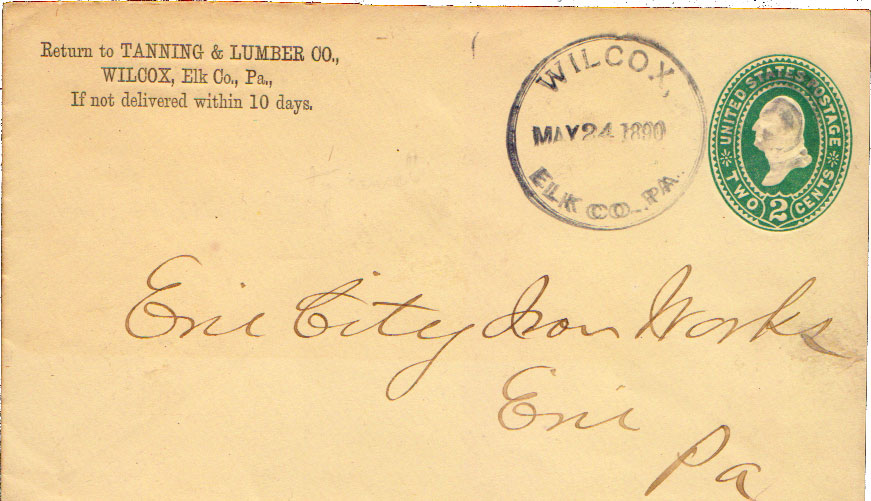 Return to TANNING & LUMBER CO.,
WILCOX, Elk Co., Pa.,
If not delivered within 10 days.
WILCOX,
MAY 24 1890
ELK CO. PA.
UNITED STATES POSTAGE
TWO 2 CENTS
Erie City Iron Works
Erie
Pa